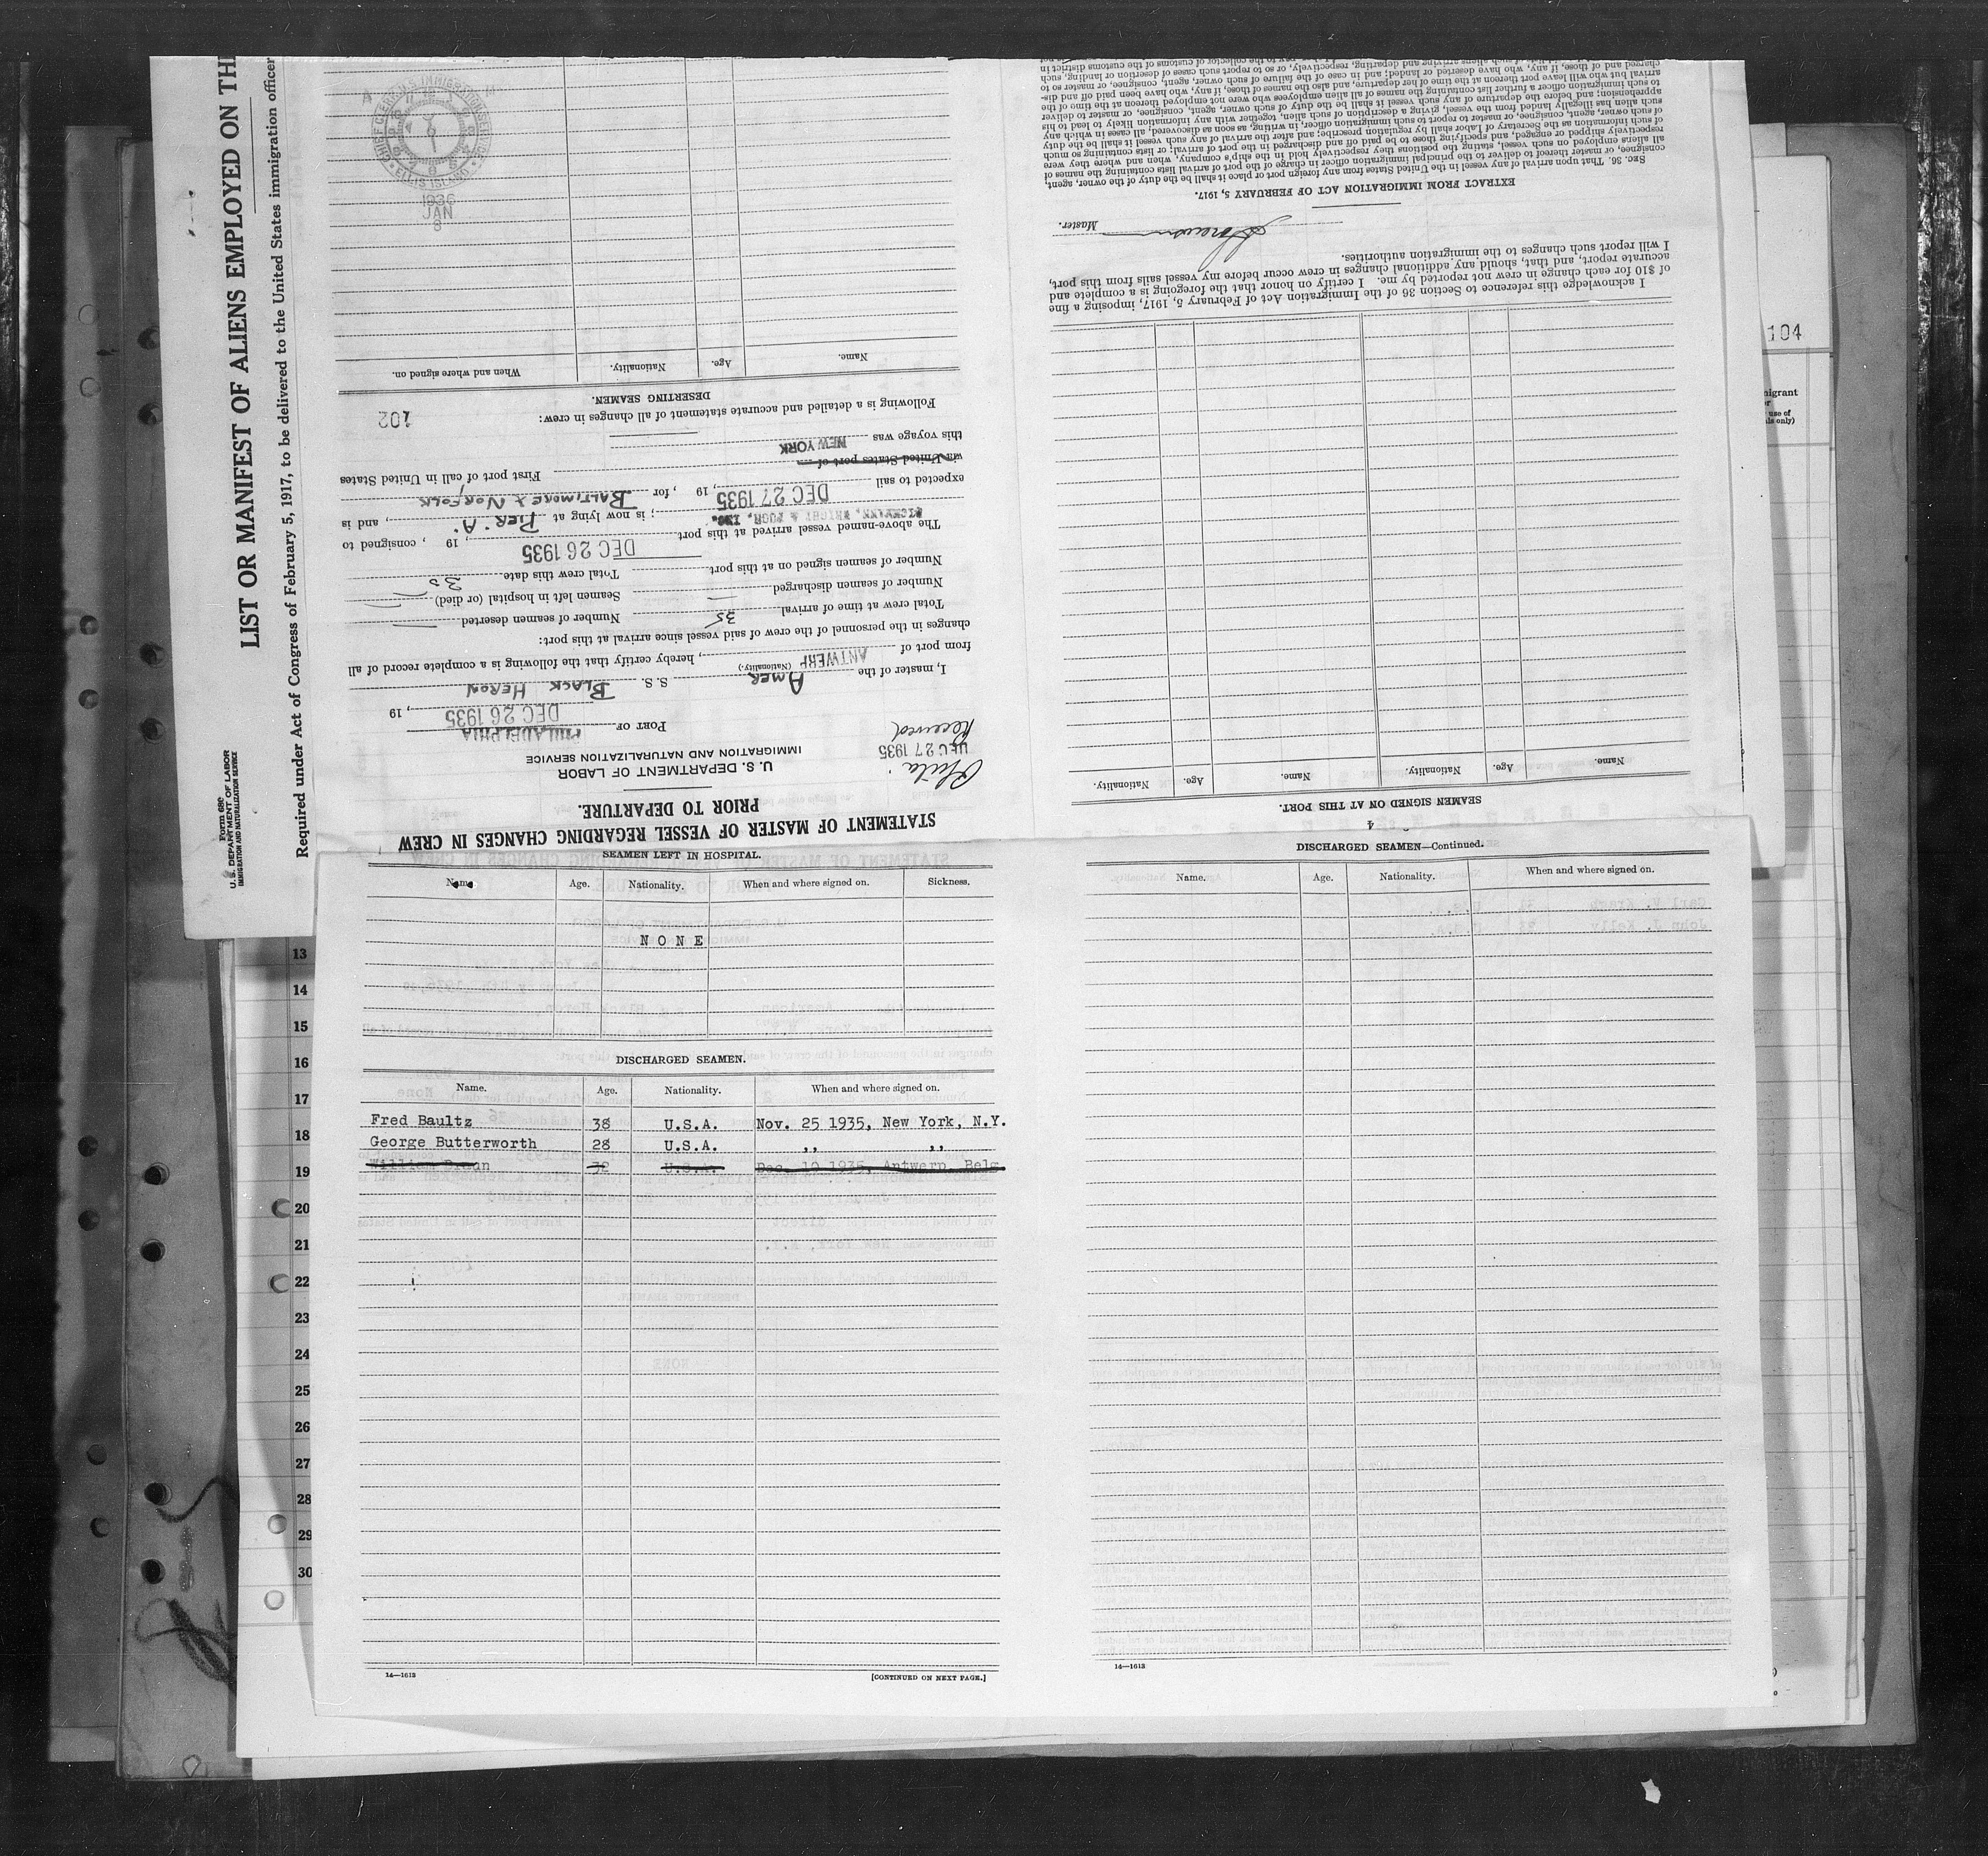 Form 680
U. S. DEPARTMENT OF LABOR
IMMIGRATION AND NATURALIZATION SERVICE
LIST OR MANIFEST OF ALIENS EMPLOYED ON THE
Required under Act of Congress of February 5, 1917, to be delivered to the United States immigration officer
STATEMENT OF MASTER OF VESSEL REGARDING CHANGES IN CREW
PRIOR TO DEPARTURE.
U. S. DEPARTMENT OF LABOR
IMMIGRATION AND NATURALIZATION SERVICE
Phila.
DEC 27 1935
Received
PORT OF PHILADELPHIA
DEC 26 1935, 19
I, master of the AMER S. S. BLACK HERON
(Nationality.)
from port of ANTWERP, hereby certify that the following is a complete record of all
changes in the personnel of the crew of said vessel since arrival at this port:
Total crew at time of arrival 35 Number of seamen deserted —
Number of seamen discharged — Seamen left in hospital (or died) —
Number of seamen signed on at this port Total crew this date 35
The above-named vessel arrived at this port DEC 26 1935, 19 , consigned to
, is now lying at PIER "A", and is
expected to sail DEC 27 1935, 19 , for BALTIMORE & NORFOLK
via United States port of First port of call in United States
this voyage was NEW YORK
Following is a detailed and accurate statement of all changes in crew: 102
DESERTING SEAMEN.
Name. Age. Nationality. When and where signed on.
CHIEF CLERK U.S. IMMIGRATION SERVICE
ELLIS ISLAND
1936
JAN
8
4
SEAMEN SIGNED ON AT THIS PORT.
Name. Age. Nationality. Name. Age. Nationality.
I acknowledge this reference to Section 36 of the Immigration Act of February 5, 1917, imposing a fine
of $10 for each change in crew not reported by me. I certify on honor that the foregoing is a complete and
accurate report, and that, should any additional changes in crew occur before my vessel sails from this port,
I will report such changes to the immigration authorities.
Master.
EXTRACT FROM IMMIGRATION ACT OF FEBRUARY 5, 1917.
SEC. 36. That upon arrival of any vessel in the United States from any foreign port or place it shall be the duty of the owner, agent,
consignee, or master thereof to deliver to the principal immigration officer in charge of the port of arrival lists containing the names of
all aliens employed on such vessel, stating the positions they respectively hold in the ship's company, when and where they were
respectively shipped or engaged, and specifying those to be paid off and discharged in the port of arrival; or lists containing so much
of such information as the Secretary of Labor shall by regulation prescribe; and after the arrival of any such vessel it shall be the duty
of such owner, agent, consignee, or master to report to such immigration officer, in writing, as soon as discovered, all cases in which any
such alien has illegally landed from the vessel, giving a description of such alien, together with any information likely to lead to his
apprehension; and before the departure of any such vessel it shall be the duty of such owner, agent, consignee, or master to deliver
to such immigration officer a further list containing the names of all alien employees who were not employed thereon at the time of the
arrival but who will leave port thereon at the time of her departure, and also the names of those, if any, who have been paid off and dis-
charged and of those, if any, who have deserted or landed; and in case of the failure of such owner, agent, consignee, or master so to
104
SEAMEN LEFT IN HOSPITAL.
Name Age. Nationality. When and where signed on. Sickness.
NONE
DISCHARGED SEAMEN.
Name. Age. Nationality. When and where signed on.
Fred Baultz 38 U.S.A. Nov. 25 1935, New York, N.Y.
George Butterworth 28 U.S.A. ,, ,,
William 32 U.S.A. Dec. 10 1935, Antwerp, Belg
14—1613 [CONTINUED ON NEXT PAGE.]
DISCHARGED SEAMEN—Continued.
Name. Age. Nationality. When and where signed on.
14—1613
13
14
15
16
17
18
19
20
21
22
23
24
25
26
27
28
29
30